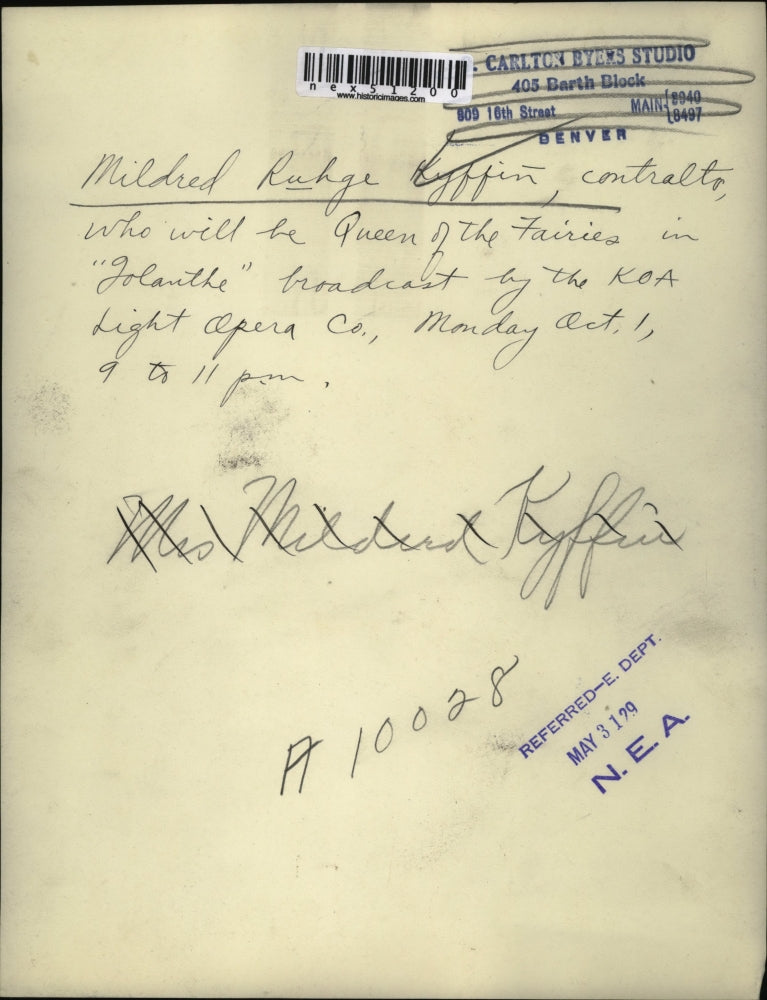 . CARLTON BYERS STUDIO
405 Barth Block
809 16th Street MAIN {8940
8497
DENVER
nex51200
www.historicimages.com
Mildred Ruhge Kyffin, contralto,
who will be Queen of the Fairies in
"Iolanthe" broadcast by the KOA
Light Opera Co., Monday Oct. 1,
9 to 11 p.m.
Mrs Mildred Kyffin
A 10028
REFERRED-E. DEPT.
MAY 31 29
N. E. A.